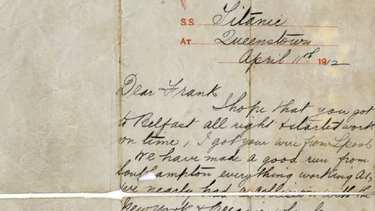 S.S Titanic
AT Queenstown
April 11th 1912
Dear Frank
I hope that you got
to Belfast all right & started work
on time, I got your wire from
We have made a good run from
Southampton everything working A1,
we nearly had a collision with the
New York &